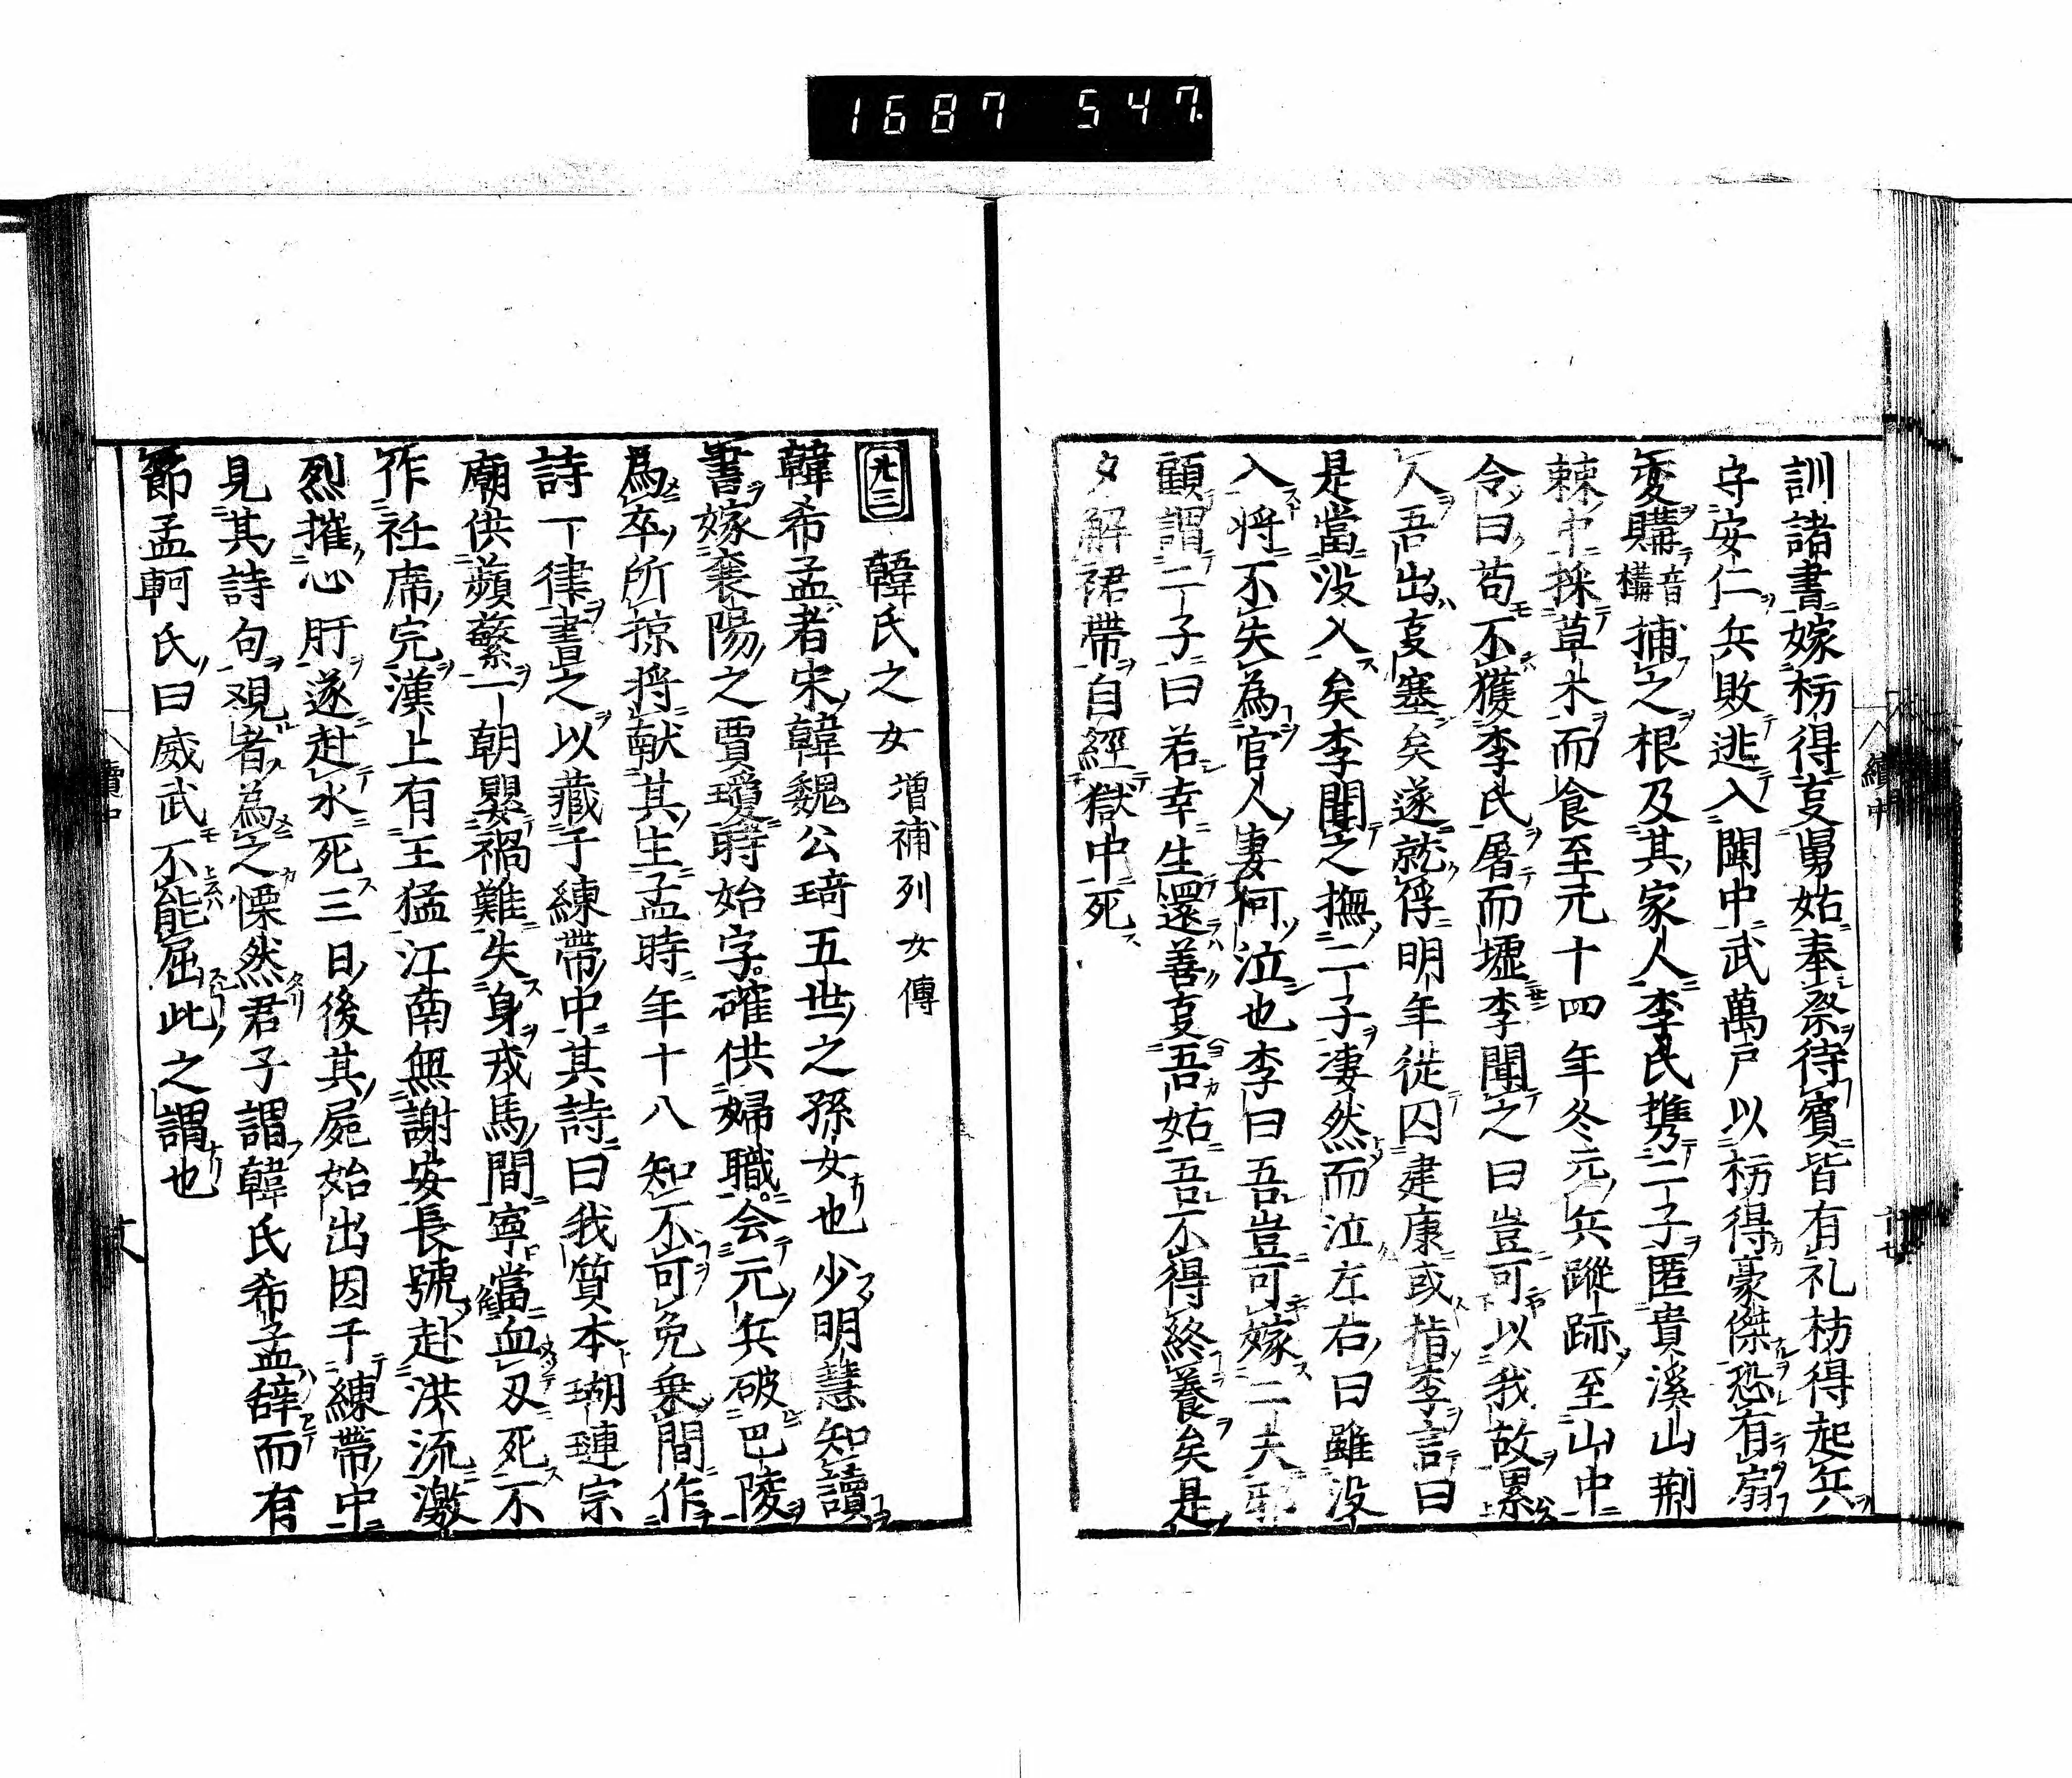 1687 547.
訓諸書嫁枋得叓舅姑奉祭待賓皆有礼枋得起兵
守安仁兵敗逃入閩中武萬戸以枋得豪傑恐有扇
変購音構捕之根及其家人李氏携二子匿貴溪山荆
棘中採草木而食至元十四年冬元兵蹤跡至山中
令曰苟不獲李氏屠而墟李聞之曰豈可以我故累
人吾出叓塞矣遂就俘明年徙囚建康或指李言曰
是當没入矣李聞之撫二子凄然而泣左右曰雖没
入将不失為官人妻何泣也李曰吾豈可嫁二夫邪
顧謂二子曰若幸生還善叓吾姑吾不得終養矣是
夕解裙帶自經獄中死
續中
九三 韓氏之女 增補列女傳
韓希孟者宋韓魏公琦五世之孫女也少明慧知讀
書嫁襄陽之賈瓊時始字確供婦職会元兵破巴陵
為卒所掠将献其主孟時年十八知不可免乗間作
詩一律書之以藏于練帶中其詩曰我質本瑚璉宗
廟供蘋蘩一朝嬰禍難失身戎馬間寧當血刄死不
作衽席完漢上有王猛江南無謝安長號赴洪流激
烈摧心肝遂赴水死三日後其屍始出因于練帶中
見其詩句観者為之慄然君子謂韓氏希孟辞而有
節孟軻氏曰威武不能屈此之謂也
續中